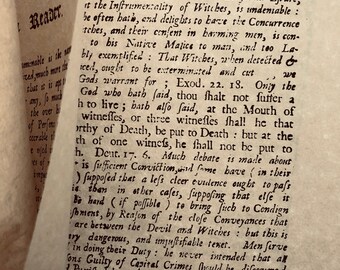 Reader.
is the Instrumentality of Witches, is undeniable:
be often hath, and delights to have the Concurrence
tches, and their consent in harming men, is con-
to his Native Malice to man, and too La-
bly exemplified: That Witches, when detected &
ced, ought to be exterminated and cut we
Gods warrant for; Exod. 22. 18. Only the
God who hath said, thou shalt not suffer a
h to live; hath also said, at the Mouth of
witnesses, or three witnesses shall he that
orthy of Death, be put to Death: but at the
th of one witness, he shall not be put to
h. Deut. 17. 6. Much debate is made about
is sufficient Conviction, and some have (in their
) supposed that a less clear evidence ought to pass
is than in other cases, supposing that else it
be hard (if possible) to bring such to Condign
shment, by Reason of the close Conveyances that
are between the Devil and Witches: but this is
ery dangerous, and unjustifiable tenet. Men serve
in doing their Duty: he never intended that all
ons Guilty of Capital Crimes should be discovered